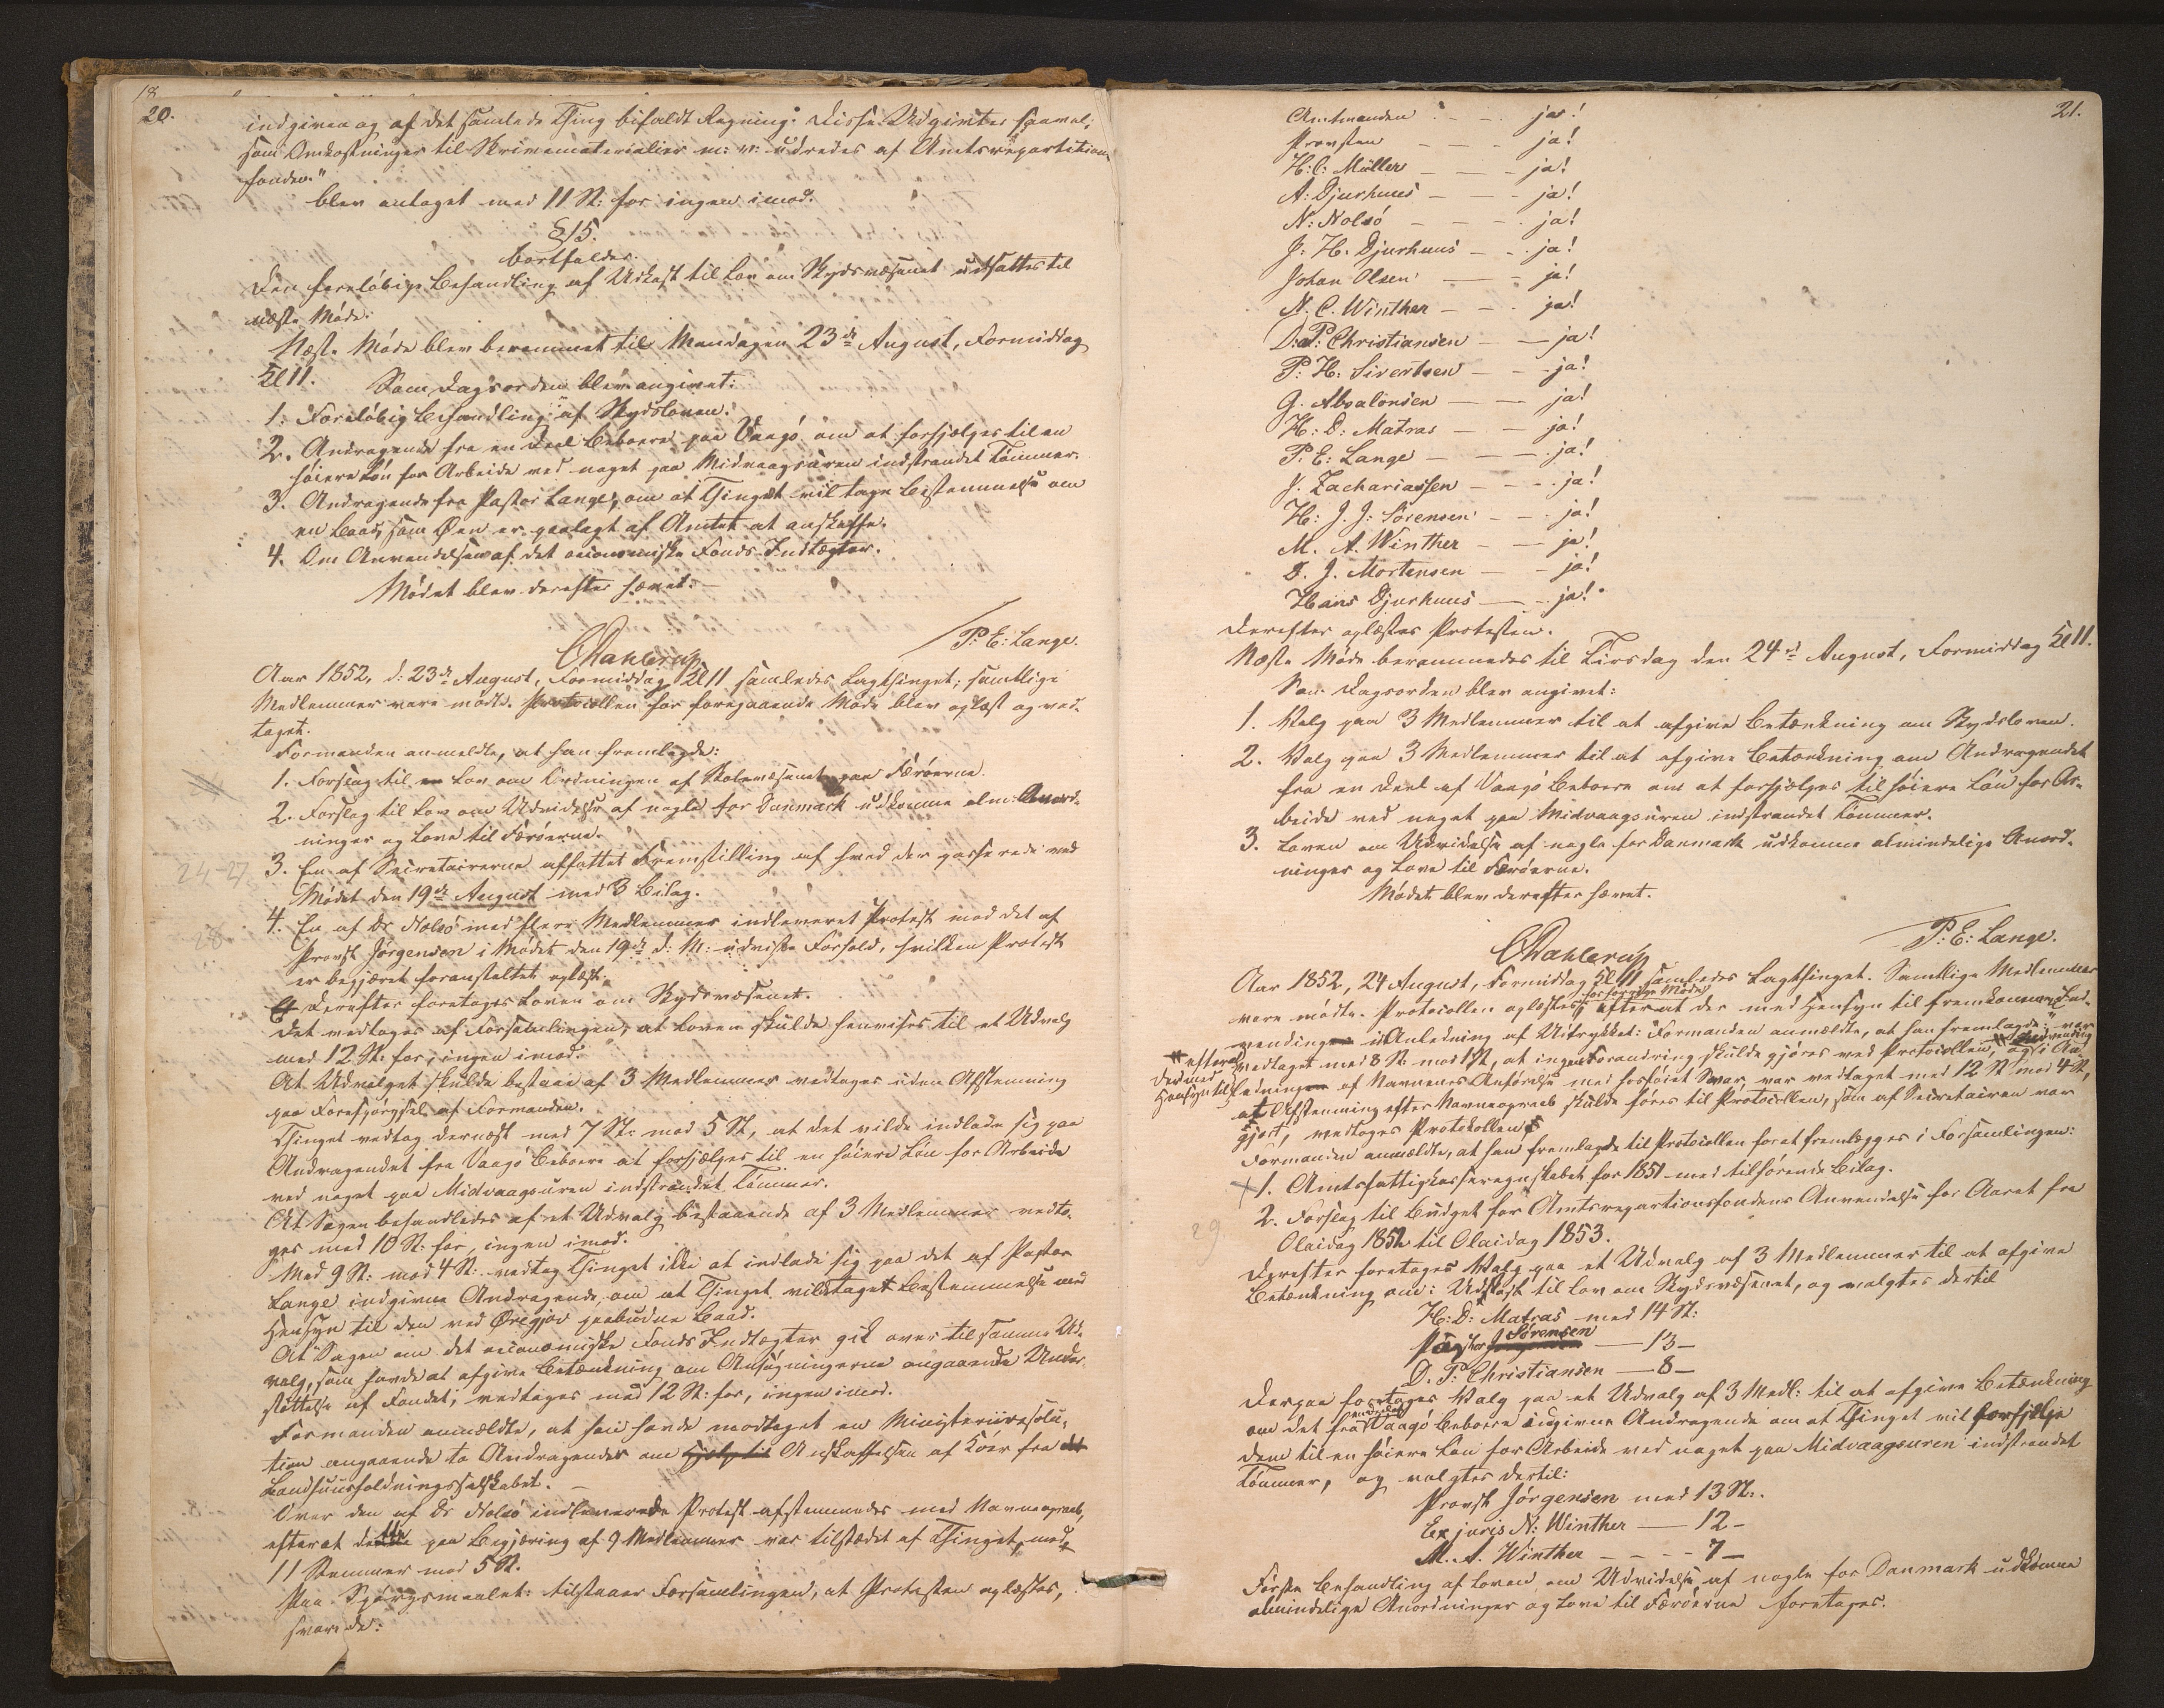 18
20.
indgiven og af det samlede Thing bifaldt Regning. Disse Udgivter saavel,
som Omkostninger til Skrivematerialier m: v: udredes af Amtsrepartitions
fonden."
blev antaget med 11 St: for ingen imod.
§15.
bortfalder.
Den foreløbige Behandling af Udkast til Lov om Skydsvæsenet udsattes til
næste Møde.
Næste Møde blev berammet til Mandagen 23de August, Formiddag
Kl 11. Som Dagsorden blev angivet:
1. Foreløbig Behandling af Skydsloven.
2. Andragende fra en Deel Beboere paa Vaagø om at forhjælpes til en
høiere Løn for Arbeide ved noget paa Midvaagsuren indstrandet Tømmer.
3. Andragende fra Pastor Lange, om at Thinget vil tage Bestemmelse om
en Baad, som Øen er paalagt af Amtet at anskaffe.
4. Om Anvendelsen af det oeconomiske Fonds Indtægter.
Mødet blev derefter hævet.
CDahlerup P: E: Lange.
Aar 1852, d: 23de August, Formiddag Kl 11 samledes Lagthinget; samtlige
Medlemmer vare mødte. Protocollen for foregaaende Møde blev oplæst og ved-
taget.
Formanden anmeldte, at han fremlagde:
1. Forslag til en Lov om Ordningen af Skolevæsenet paa Færøerne.
2. Forslag til Lov om Udvidelse af nogle for Danmark udkomne alm: Anord-
ninger og Love til Færøerne.
24-27 3. En af Secretairerne affattet Fremstilling af hvad der passerede ved
Mødet den 19de August med 3 Bilag.
28 4. En af Dr Nolsø med flere Medlemmer indleveret Protest mod det af
Provst Jørgensen i Mødet den 19de d: M: udviste Forhold, hvilken Protest
er begjæret foranstaltet oplæst.
Derefter foretoges Loven om Skydsvæsenet.
Det vedtoges af Forsamlingen, at Loven skulde henvises til et Udvalg
med 12 St. for, ingen imod.
At Udvalget skulde bestaae af 3 Medlemmer vedtoges uden Afstemning
paa Forespørgsel af Formanden.
Thinget vedtog dernæst med 7 St: mod 5 St, at det vilde indlade sig paa
Andragendet fra Vaagø Beboere at forhjælpes til en høiere Løn for Arbeide
ved noget paa Midvaagsuren indstrandet Tømmer.
At Sagen behandledes af et Udvalg bestaaende af 3 Medlemmer vedto-
ges med 10 St. for, ingen imod.
Med 9 St: mod 4 St: vedtog Thinget ikke at indlade sig paa det af Pastor
Lange indgivne Andragende, om at Thinget vilde taget Bestemmelse med
Hensyn til den ved Øregjov paabudne Baad.
At Sagen om det oeconomiske Fonds Indtægter gik over til samme Ud-
valg, som havde at afgive Betænkning om Ansøgningerne angaaende Under-
støttelse af Fondet, vedtoges med 12 St: for, ingen imod.
Formanden anmældte, at han havde modtaget en Ministeriiresolu-
tion angaaende to Andragender om Hjelp til Anskaffelsen af Køer fra det
Landhuusholdningsselskabet.
Over den af Dr Nolsø indleverede Protest afstemmedes med Navneopraab,
efterat dette paa Begjæring af 9 Medlemmer var tilstædet af Thinget med
11 Stemmer mod 5 St.
Paa Spørgsmaalet: tilstaaer Forsamlingen, at Protesten oplæstes,
svarede:
21.
Amtmanden - - - ja!
Provsten - - - ja!
H: C: Müller - - - ja!
A: Djurhuus - - - ja!
N: Nolsö - - - ja!
J: H. Djurhuus - - ja!
Johan Olsen - - ja!
N. C. Winther - - ja!
D. P: Christiansen - - ja!
P: H: Sivertsen - - ja!
G. Absalonsen - - ja!
H: D: Matras - - ja!
P: E: Lange - - - ja!
J. Zachariassen - - - ja!
H: J. J: Sörensen - - ja!
M. A. Winther - - ja!
D. J. Mortensen - - ja!
Hans Djurhuus - - ja!
Derefter oplæstes Protesten.
Næste Møde berammedes til Tirsdag den 24de August, Formiddag Kl 11.
Som Dagsorden blev angivet:
1. Valg paa 3 Medlemmer til at afgive Betænkning om Skydsloven.
2. Valg paa 3 Medlemmer til at afgive Betænkning om Andragendet
fra en Deel af Vaagø Beboere om at forhjælpes til høiere Løn for Ar-
beide ved noget paa Midvaagsuren indstrandet Tømmer.
3. Loven om Udvidelse af nogle for Danmark udkomne almindelige Anord-
ninger og Love til Færøerne.
Mødet blev derefter hævet.
CDahlerup P: E: Lange.
Aar 1852, 24 August, Formiddag Kl 11 samledes Lagthinget. Samtlige Medlemmer
vare mødte. Protocollen oplæstes for foregde Møde efterat der med Hensyn til fremkommen Ind-
vending i Anledning af Udtrykket: "Formanden anmældte, at han fremlagde:" var
vedtaget med 8 St mod 1 St, at ingen Forandring skulde gjøres ved Protocollen, og i An-
efterat der med Hensyn til
ledningen af Navnenes Anførelse med hosføiet Svar, var vedtaget med 12 St mod 4 St,
at Afstemning efter Navneopraab skulde føres til Protocollen, som af Secretairen var
gjort, vedtoges Protokollen.
Formanden anmældte, at han fremlagde til Protocollen for at fremlægges i Forsamlingen:
1. Amtsfattigkasseregnskabet for 1851 med tilhørende Bilag.
29 2. Forslag til Budget for Amtsrepartionsfondens Anvendelse for Aaret fra
Olaidag 1852 til Olaidag 1853.
Derefter foretoges Valg paa et Udvalg af 3 Medlemmer til at afgive
Betænkning om: Udkast til Lov om Skydsvæsenet, og valgtes dertil
H: D: Matras med 14 St:
Sörensen - 13 -
D. P: Christiansen - 8 -
Derpaa foretoges Valg paa et Udvalg af 3 Medl: til at afgive Betænkning
om det fra Vaagø Beboere indgivne Andragende om at Thinget vil forhjelpe
dem til en høiere Løn for Arbeide ved noget paa Midvaagsuren indstrandet
Tømmer, og valgtes dertil:
Provst Jörgensen med 13 St:.
Exjuris N: Winther - 12 -
M. A. Winther - - - 7 -
Første Behandling af Loven om Udvidelse af nogle for Danmark udkomne
almindelige Anordninger og Love til Færøerne foretoges.